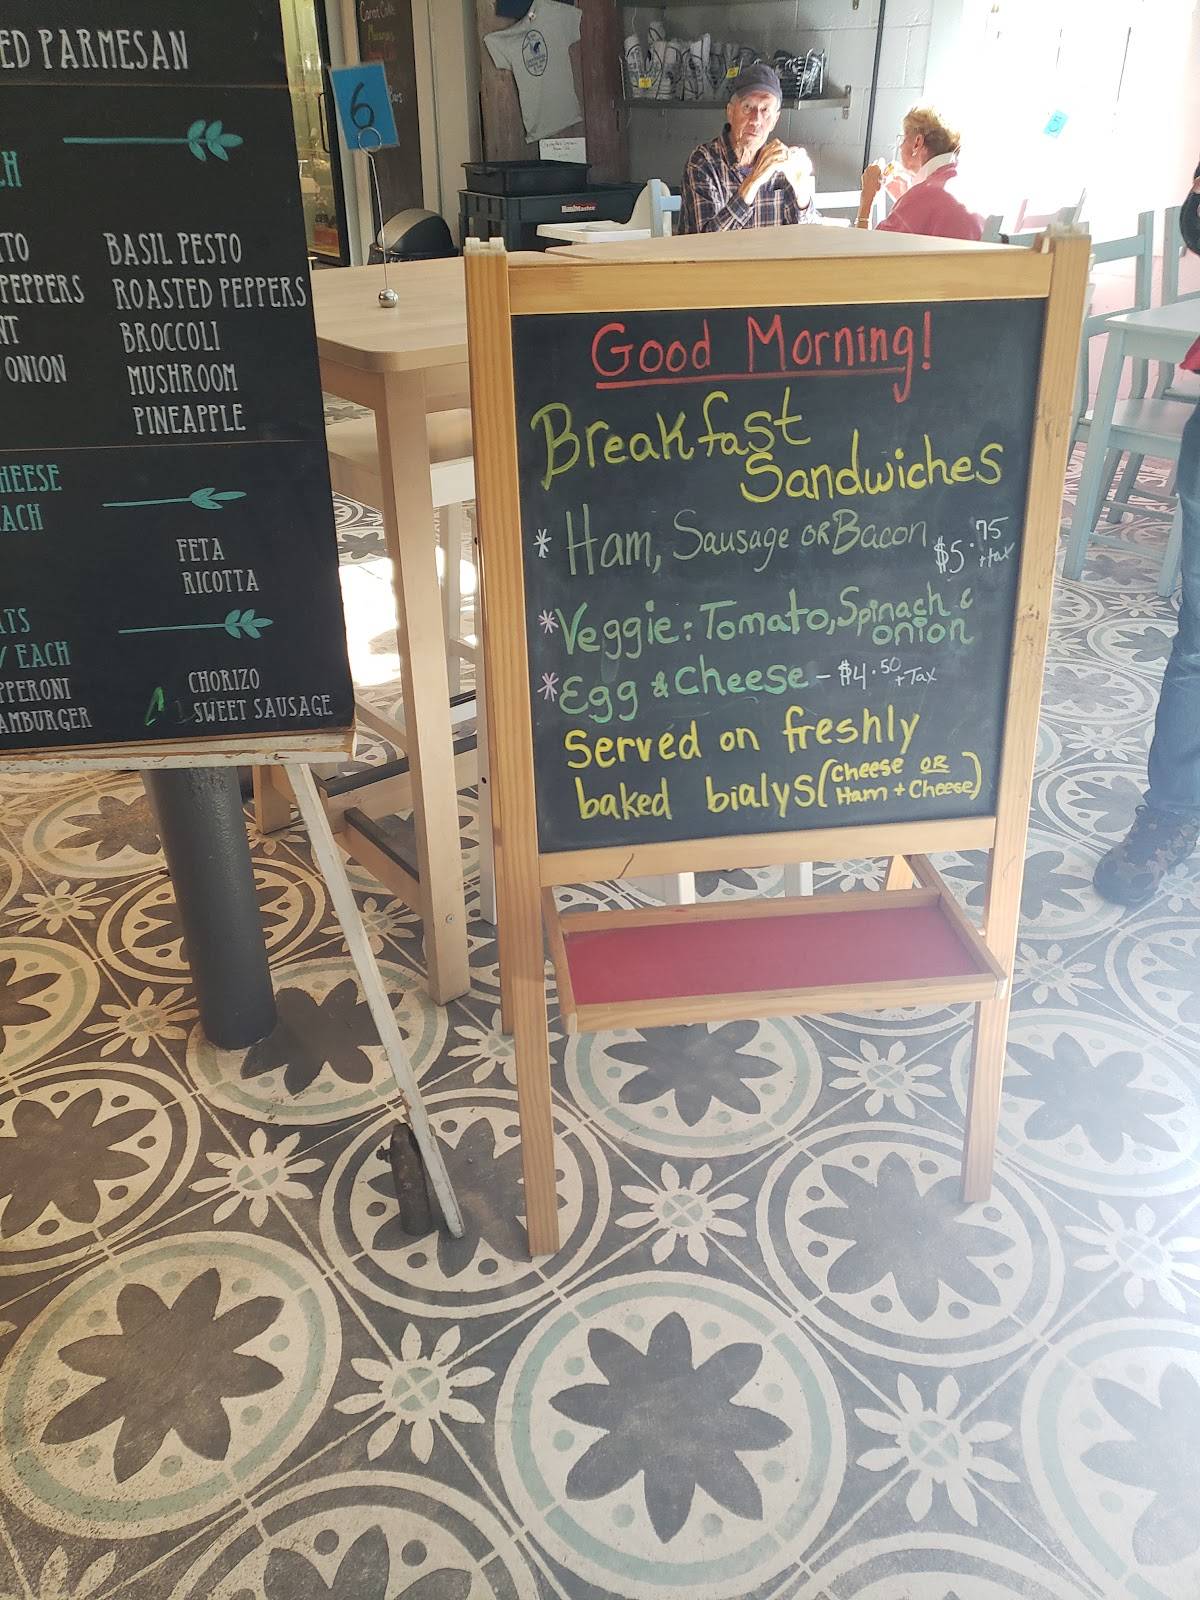 PARMESAN
BASIL PESTO
PEPPERS ROASTED PEPPERS
BROCCOLI
ONION MUSHROOM
PINEAPPLE
FETA
RICOTTA
EACH
CHORIZO
SWEET SAUSAGE
6
Good Morning!
Breakfast
Sandwiches
* Ham, Sausage OR Bacon $5.75 + tax
* Veggie: Tomato, Spinach &
onion
* Egg & Cheese - $4.50 + Tax
Served on freshly
baked bialys (cheese OR
Ham + Cheese)
5